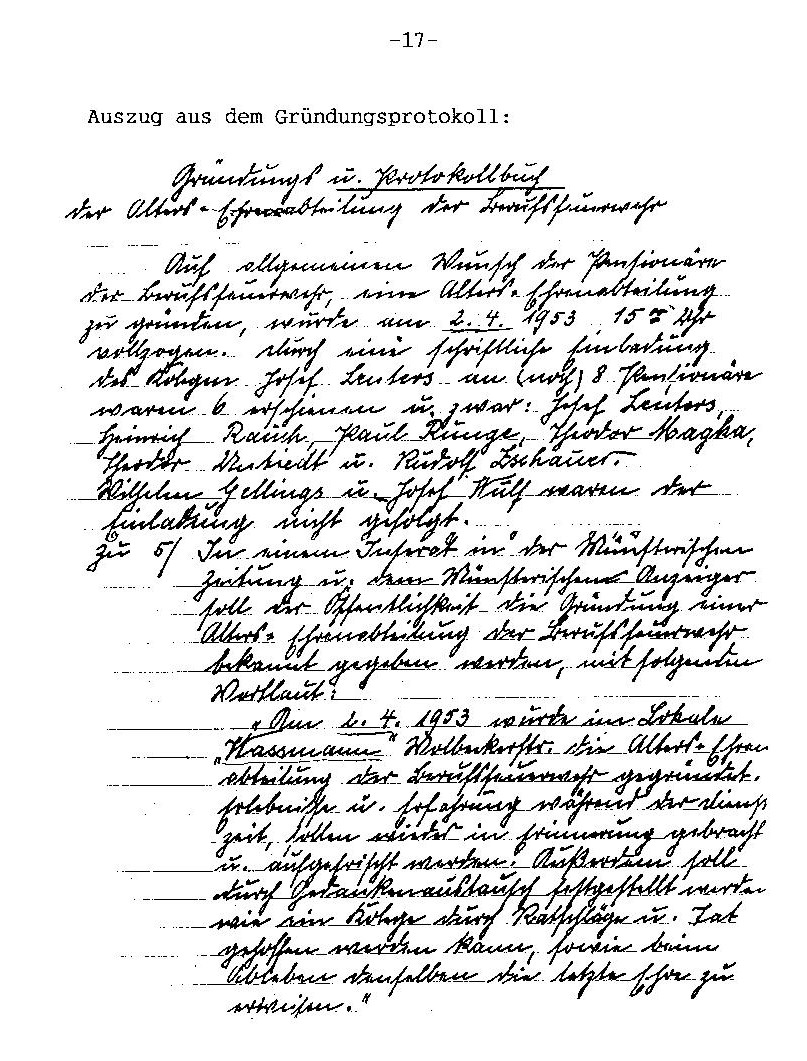 -17-
Auszug aus dem Gründungsprotokoll:
Gründungs u. Protokollbuch
der Alters- Ehrenabteilung der Berufsfeuerwehr
Auf allgemeinen Wunsch der Pensionäre
der Berufsfeuerwehr, eine Alters- Ehrenabteilung
zu gründen, wurde am 2.4. 1953 15 Uhr
vollzogen. Durch eine schriftliche Einladung
des Kolegen Josef Lenters an (noch) 8 Pensionäre
waren 6 erschienen u. zwar: Josef Lenters,
Heinrich Rauch, Paul Runge, Theodor Magka,
Theodor Unstiedt u. Rudolf Zschauer.
Wilhelm Gellings u. Josef Wulf waren der
Einladung nicht gefolgt.
zu 5/ In einem Inserat in der Münsterischen
Zeitung u. dem Münsterischen Anzeiger
soll der Öffentlichkeit die Gründung einer
Alters- Ehrenabteilung der Berufsfeuerwehr
bekannt gegeben werden, mit folgenden
Wortlaut:
„Am 2.4. 1953 wurde im Lokale
„Hassmann" Wolbeckerstr. die Alters- Ehren
abteilung der Berufsfeuerwehr gegründet.
Erlebnisse u. Erfahrung während der Dienst
zeit, sollen wieder in Erinnerung gebracht
u. aufgefrischt werden. Außerdem soll
durch Gedankenaustausch festgestellt werden
wie ein Kolege durch Ratschläge u. Tat
geholfen werden kann, sowie beim
Ableben denselben die letzte Ehre zu
erweisen."